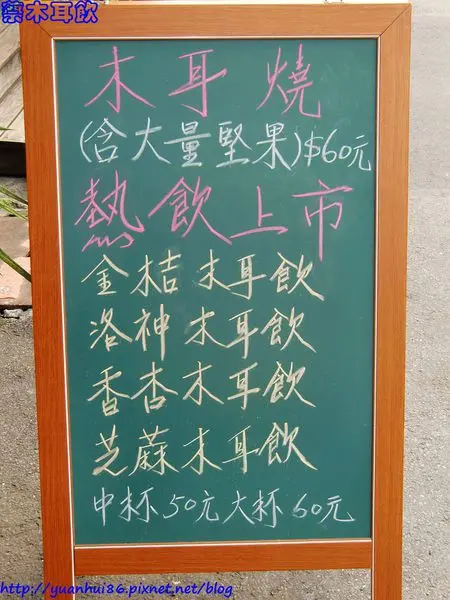 蔡木耳飲
木耳燒
(含大量堅果)$60元
熱飲上市
金桔木耳飲
洛神木耳飲
香杏木耳飲
芝蔴木耳飲
中杯50元大杯60元
http://yuanhui86.pixnet.net/blog